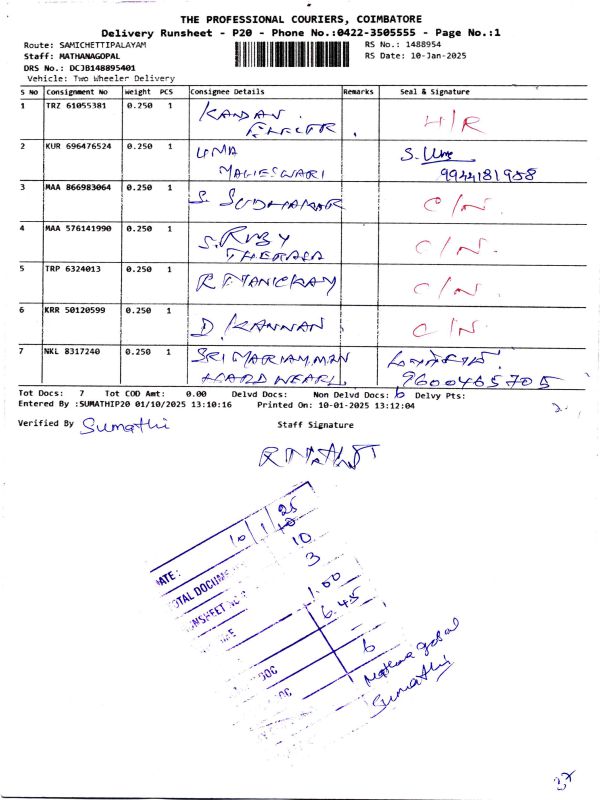 THE PROFESSIONAL COURIERS, COIMBATORE
Delivery Runsheet - P20 - Phone No.:0422-3505555 - Page No.:1
Route: SAMICHETTIPALAYAM RS No.: 1488954
Staff: MATHANAGOPAL RS Date: 10-Jan-2025
DRS No.: DCJB148895401
Vehicle: Two Wheeler Delivery
S No Consignment No Weight PCS Consignee Details Remarks Seal & Signature
1 TRZ 61055381 0.250 1 KANDAN H/R
2 KUR 696476524 0.250 1 UMA S. Uma
MAGIESWARI 9944181958
3 MAA 866983064 0.250 1 S. SUDHAKAR C/N.
4 MAA 576141990 0.250 1 S. RUBY C/N.
THERASA
5 TRP 6324013 0.250 1 R MANICKAM C/N.
6 KRR 50120599 0.250 1 D. KANNAN C/N.
7 NKL 8317240 0.250 1 SRI MARIAMMAN
HARDWEAR. 9600465705
Tot Docs: 7 Tot COD Amt: 0.00 Delvd Docs: Non Delvd Docs: 6 Delvy Pts:
Entered By :SUMATHIP20 01/10/2025 13:10:16 Printed On: 10-01-2025 13:12:04
Verified By Sumathi Staff Signature
DATE: 10/1/25
TOTAL DOCUM 10
3
1.00
6.45
DOC 6
Mathanagobal
Sumathi